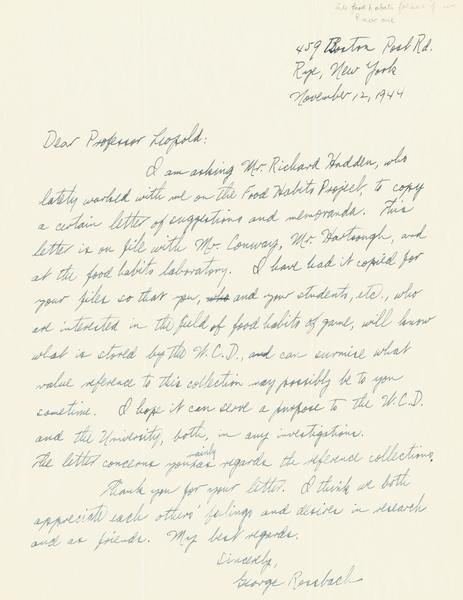 459 Boston Post Rd.
Rye, New York
November 12, 1944
Dear Professor Leopold:
I am asking Mr. Richard Hadden, who
lately worked with me on the Food Habits Project, to copy
a certain letter of suggestions and memoranda. This
letter is on file with Mr. Conway, Mr. Hartsough, and
at the food habits laboratory. I have had it copied for
your files so that you, and your students, etc., who
are interested in the field of food habits of game, will know
what is stored by the W.C.D., and can surmise what
value reference to this collection may possibly be to you
sometime. I hope it can serve a purpose to the W.C.D.
and the University, both, in any investigations.
The letter concerns you mainly as regards the reference collections.
Thank you for your letter. I think we both
appreciate each others' feelings and desires in research
and as friends. My best regards.
Sincerely,
George Rossbach